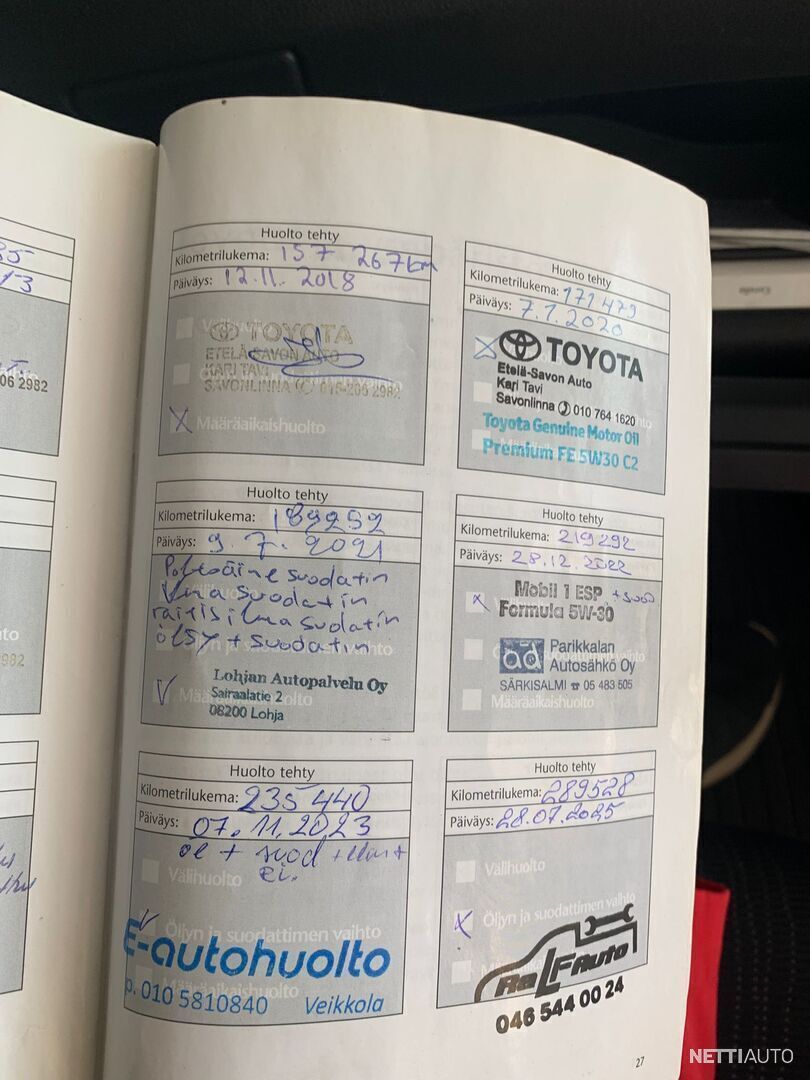 Huolto tehty
Kilometrilukema: 157 267km
Päiväys: 12.11.2018
TOYOTA
ETELÄ-SAVON AUTO
KARI TAVI
SAVONLINNA 015-206 2982
X Määräaikaishuolto
Huolto tehty
Kilometrilukema: 171 479
Päiväys: 7.1.2020
TOYOTA
Etelä-Savon Auto
Kari Tavi
Savonlinna 010 764 1620
Toyota Genuine Motor Oil
Premium FE 5W30 C2
Huolto tehty
Kilometrilukema: 189252
Päiväys: 9.7.2021
Poltoäine suodatin
ilma suodatin
raitis ilma suodatin
öljy + suodatin
Lohjan Autopalvelu Oy
Sairaalatie 2
08200 Lohja
Huolto tehty
Kilometrilukema: 219292
Päiväys: 28.12.2022
x Mobil 1 ESP + suod
Formula 5W-30
ad Parikkalan
Autosähkö Oy
SÄRKISALMI ☎ 05 483 505
Määräaikaishuolto
Huolto tehty
Kilometrilukema: 235 440
Päiväys: 07.11.2023
öl + suod +
Välihuolto
Öljyn ja suodattimen vaihto
E-autohuolto
p. 010 5810840 Veikkola
Huolto tehty
Kilometrilukema: 289528
Päiväys: 28.07.2025
Välihuolto
X Öljyn ja suodattimen vaihto
RaLF Auto
046 544 00 24
06 2982
982
27
NETTIAUTO